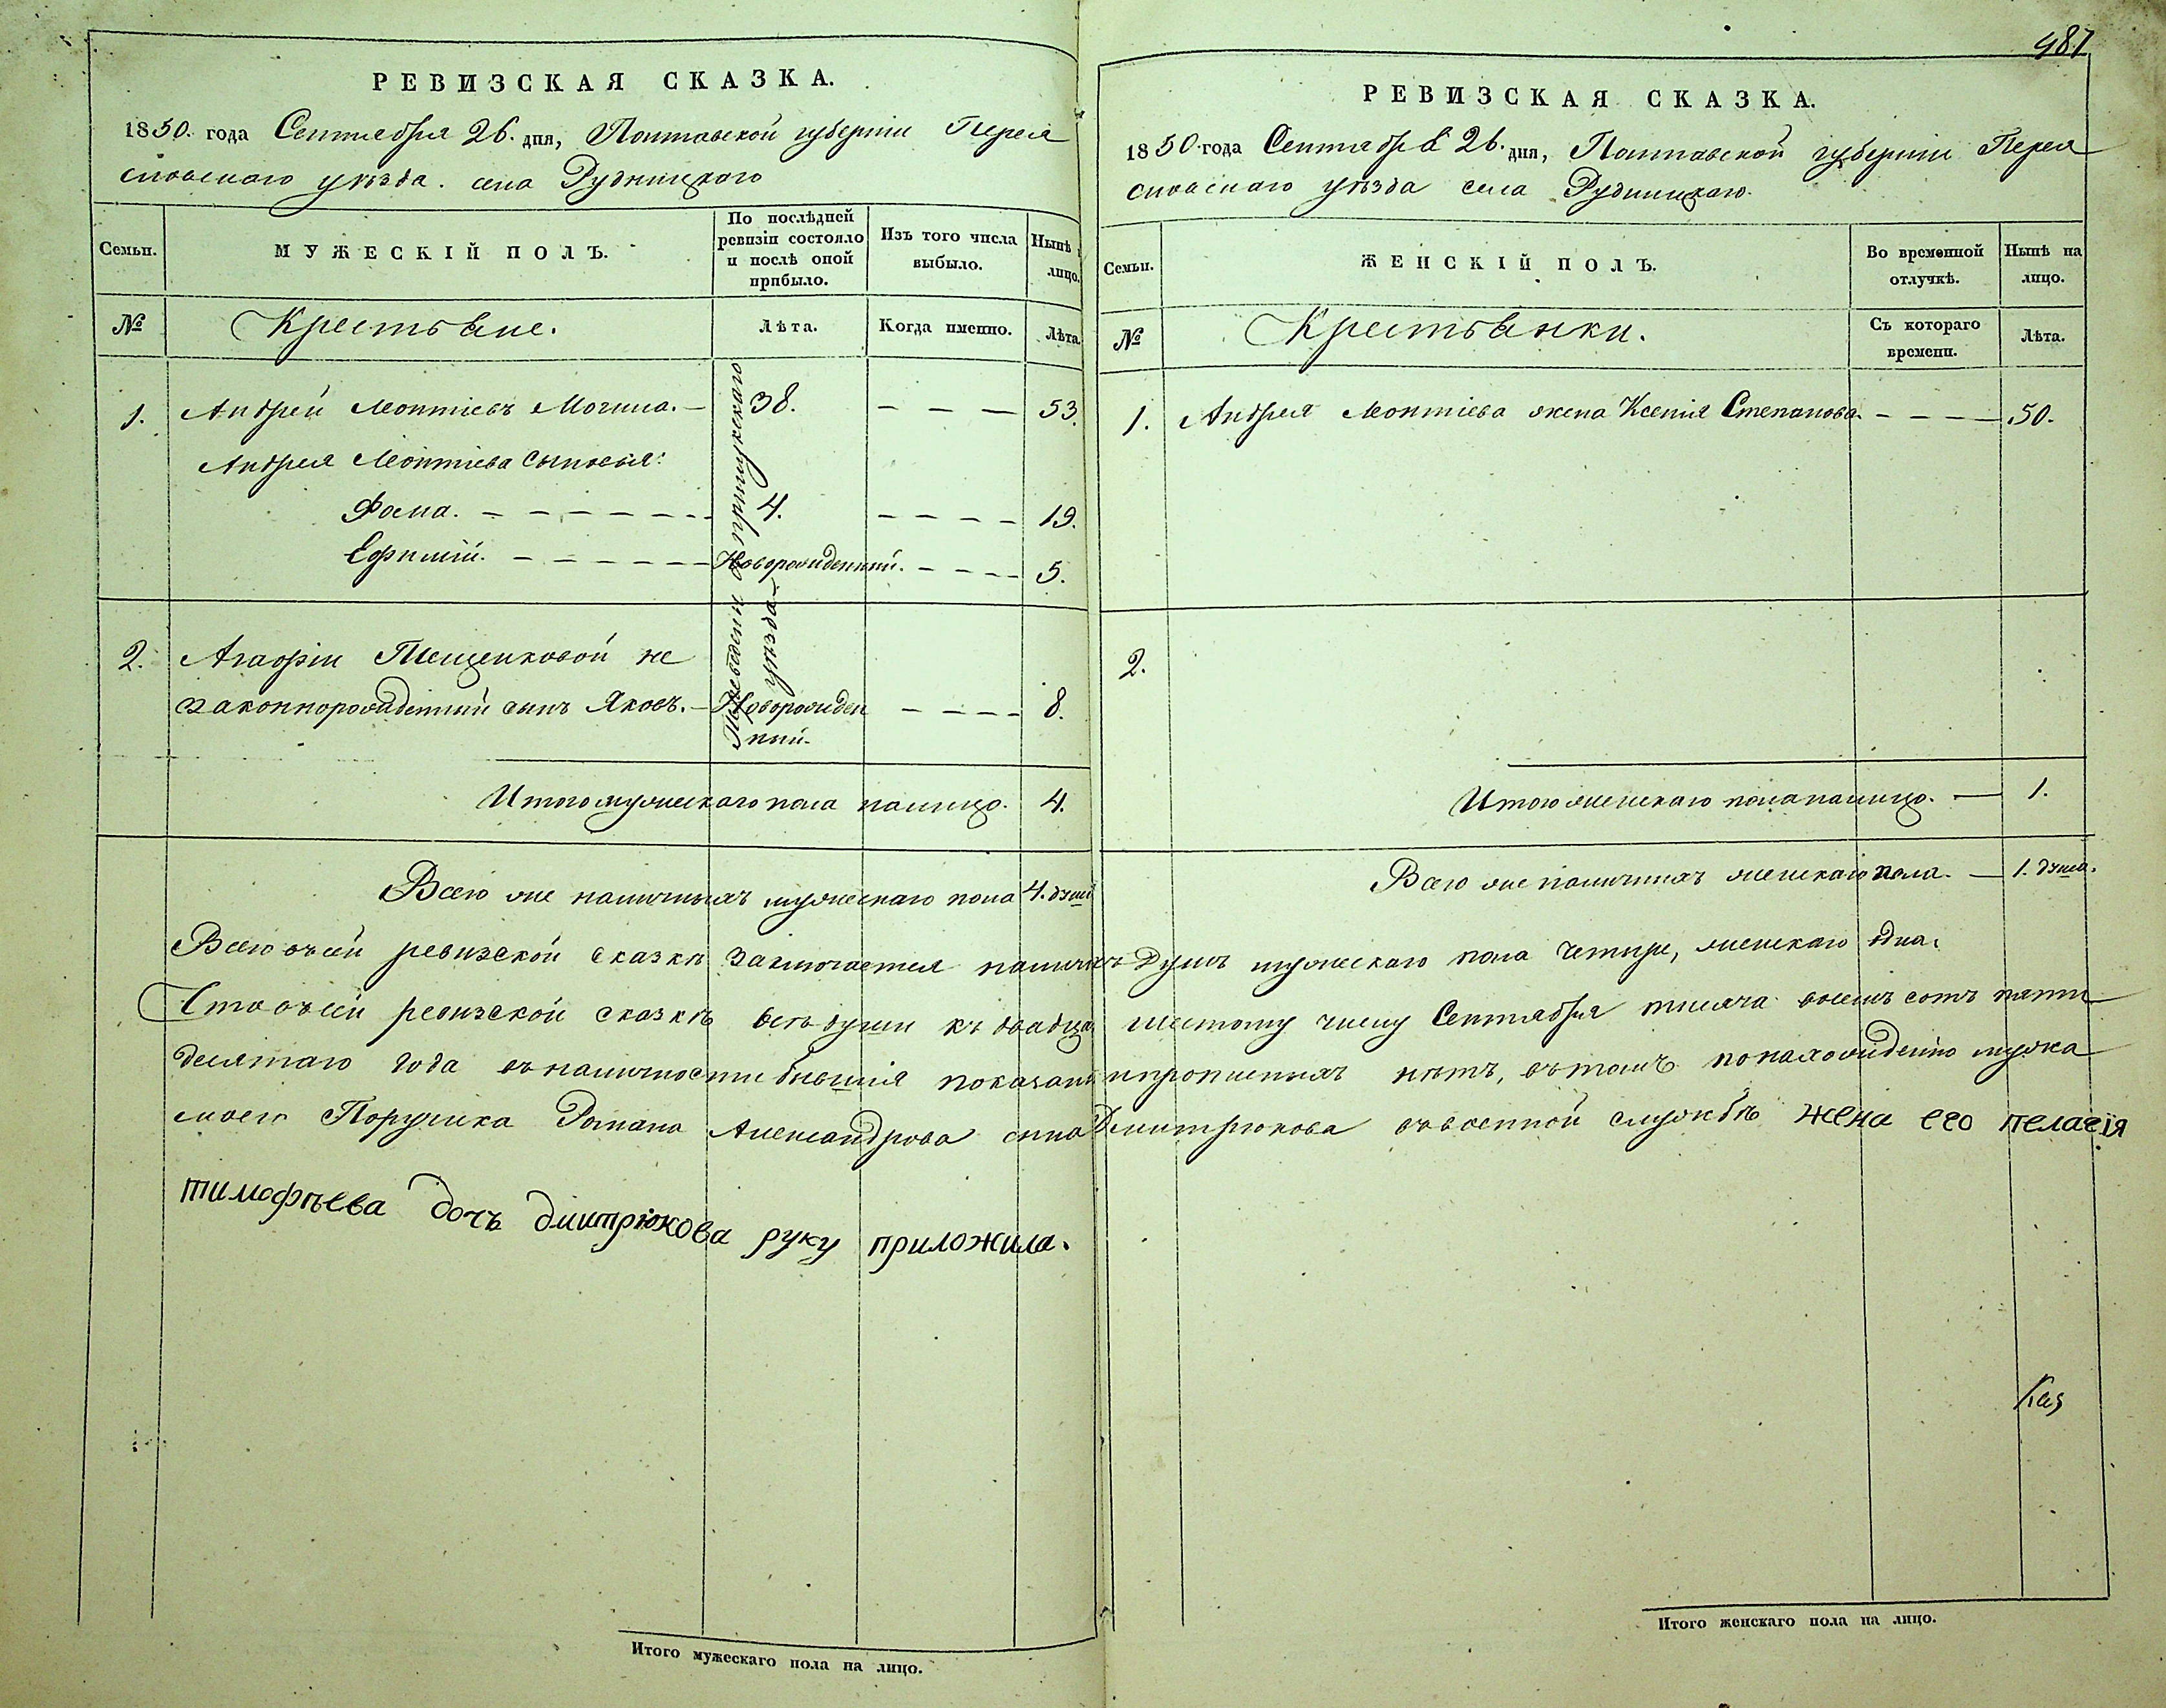 РЕВИЗСКАЯ СКАЗКА.
1850. года Сентября 26. дня, Полтавской губерніи Перея
славскаго уѣзда. села Рудницкого
Семьи.
МУЖЕСКІЙ ПОЛЪ.
По послѣдней
ревизіи состояло
и послѣ оной
прибыло.
Изъ того числа
выбыло.
Нынѣ
лицо.
№
Крестьяне.
Лѣта.
Когда именно.
Лѣта
1. Андрей Леонтіевъ Могила. — 38. — — — 53.
Андрея Леонтіева сыновья:
Фома. — — — — — — 4. — — — — 19.
Ефимій. — — — — — Новорожденный. — — — — 5.
2. Агафіи Тещенковой не
законнорожденный сынъ Яковъ. — Новорожден — — — — 8.
ный.
Переведены Прилукскаго
уѣзда
Итого мужескаго пола налицо. 4.
Всего же наличныхъ мужескаго пола 4. души
487
РЕВИЗСКАЯ СКАЗКА.
1850 года Сентября 26. дня, Полтавской губерніи Перея
славскаго уѣзда села Рудницкаго.
Семьи.
ЖЕНСКІЙ ПОЛЪ.
Во временной
отлучкѣ.
Нынѣ на
лицо.
№
Крестьянки.
Съ котораго
времени.
Лѣта.
1. Андрея Леонтіева жена Ксенія Степанова. — — — — 50.
2.
Итого женскаго пола налицо. — 1.
Всего же наличныхъ женскаго пола. — 1. душа.
Всего въ сей ревизской сказкѣ заключается наличныхъ душъ мужескаго пола четыре, женскаго одна.
Что въ сей ревизской сказкѣ всѣ души къ двадца шестому числу Сентября тысяча восемъ сотъ пяти
десятаго года въ наличности бывшія показаны и пропшенныхъ нѣтъ, въ томъ по нахожденію мужа
моего Поручика Романа Александрова сына Дмитрюкова въ военной службѣ жена его пелагія
тимофѣева дочъ дмитрюкова руку приложила.
Каз
Итого мужескаго пола на лицо.
Итого женскаго пола на лицо.